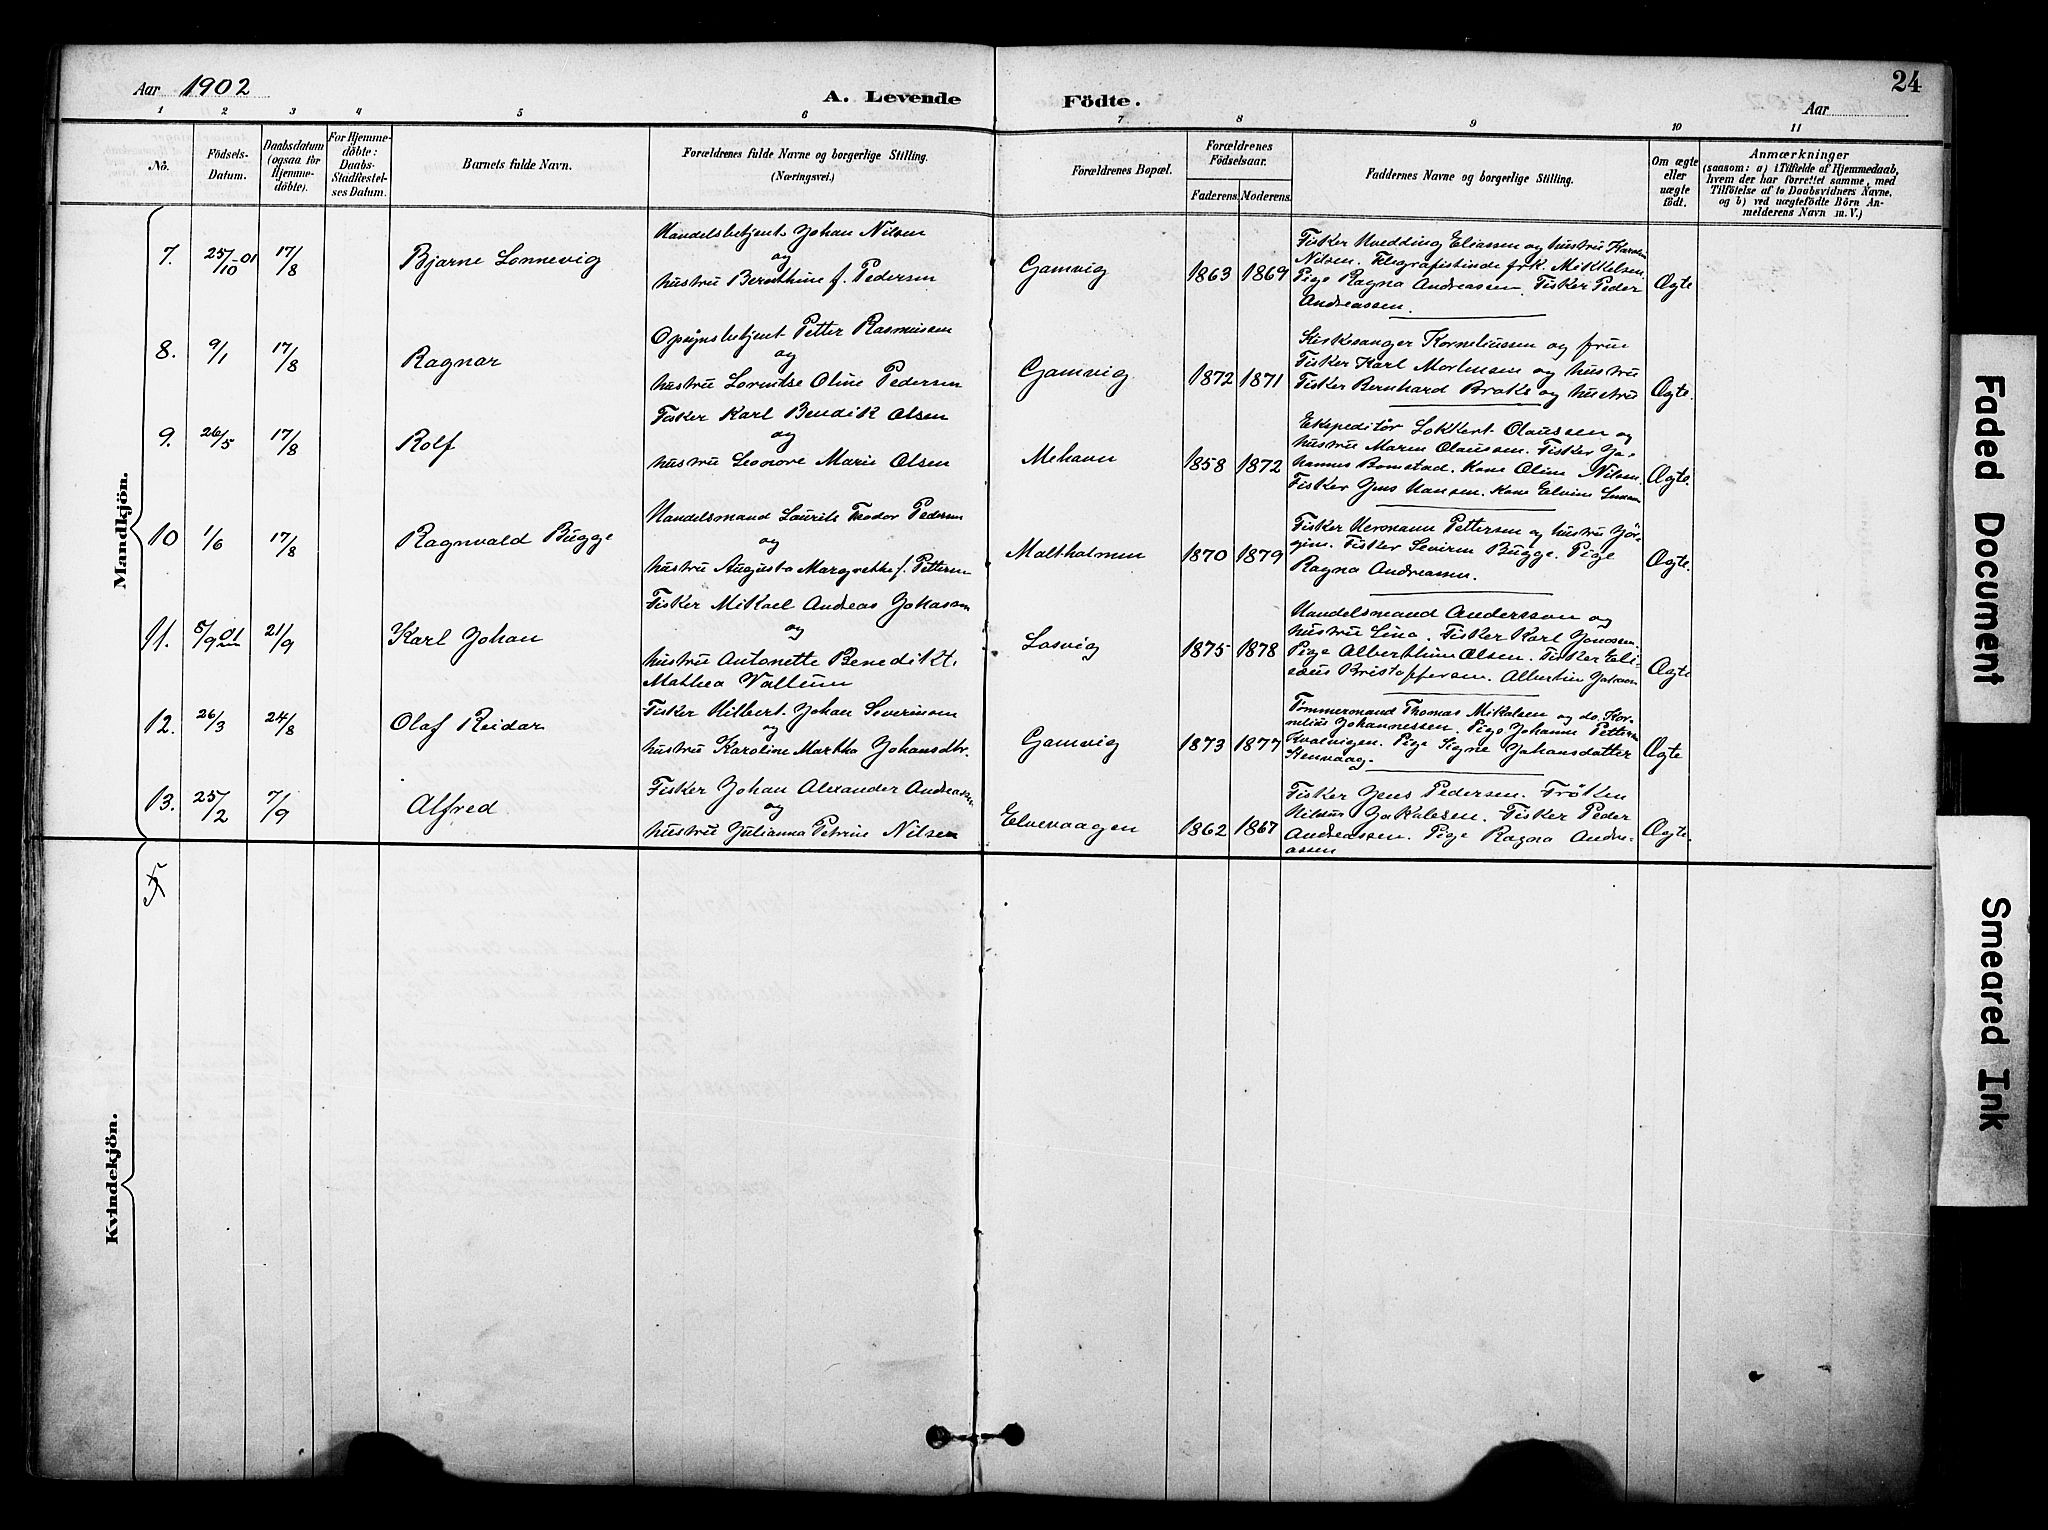 24
Aar 1902
A. Levende Födte.
Aar
1 2 3 4 5 6 7 8 9 10 11
No.
Födsels-
Datum.
Daabsdatum
(ogsaa for
Hjemme-
döbte).
For Hjemme-
döbte:
Daabs-
Stadfæstel-
ses Datum.
Barnets fulde Navn.
Forældrenes fulde Navne og borgerlige Stilling.
(Næringsvei.)
Forældrenes Bopæl.
Forældrenes
Födselsaar.
Faderens. Moderens.
Faddernes Navne og borgerlige Stilling.
Om ægte
eller
uægte
födt.
Anmærkninger
(saasom: a) i Tilfælde af Hjemmedaab,
hvem der har forrettet samme, med
Tilföielse af to Daabsvidners Navne,
og b) ved uægtefödte Börn An-
melderens Navn m. V.)
Mandkjön.
7. 25/10-01 17/8 Bjarne Lonnevig
Handelsbetjent Johan Nilsen
og
hustru Bernthine f. Pedersen
Gamvig 1863 1869
Fisker Hvedding Eliassen og hustru Karoline
Nilsen. Telegrafistinde frk. Mikkelsen.
Pige Ragna Andreassen. Fisker Peder
Andreassen.
Ægte
8. 9/1 17/8 Ragnar
Opsynsbetjent Petter Rasmussen
og
hustru Lorentse Oline Pedersen
Gamvig 1872 1871
Kirkesanger Korneliussen og frue
Fisker Karl Mortensen og hustru
Fisker Bernhard Broks og hustru
Ægte.
9. 26/5 17/8 Rolf
Fisker Karl Bendik Olsen
og
hustru Leonore Marie Olsen
Mehavn 1858 1872
Ekspeditör Lokkert Olaussen og
hustru Maren Olaussen. Fisker Jo-
hannes Bomstad. Kone Oline Nilsen.
Fisker Jens Hansen. Kone Elvine
Ægte.
10 1/6 17/8 Ragnvald Bugge
Handelsmand Laurits Teodor Pedersen
og
hustru Augusta Margrethe f. Pettersen
Maltholmen 1870 1879
Fisker Hermann Pettersen og hustru Jör-
gine. Fisker Severin Bugge. Pige
Ragna Andreassen.
Ægte.
11. 5/9 01 21/9 Karl Johan
Fisker Mikael Andreas Johansen
og
hustru Antonette Benedikt.
Mathea Vallum
Losvig 1875 1878
Handelsmand Andersson og
hustru Lina. Fisker Karl Jonassen.
Pige Alberthine Olsen. Fisker Eli-
seus Kristoffersen. Albertine Johnsen
Ægte
12. 26/3 24/8 Olaf Reidar
Fisker Hilbert Johan Severinsen
og
hustru Karoline Martha Johansdtr.
Gamvig 1873 1877
Tömmermand Thomas Mikalsen og do. Kor-
nelius Johannessen. Pige Johanne Pettersen
Kvalvigen. Pige Signe Johansdatter
Stenvaag.
Ægte
13. 25/2 7/9 Alfred
Fisker Johan Alexander Andreassen
og
hustru Julianna Petrine Nilsen
Elvevaagen 1862 1867
Fisker Jens Pedersen. Fröken
Nilsus Jakobsen. Fisker Peder
Andreassen. Pige Ragna Andre-
assen
Ægte.
Kvindekjön.
Faded Document
Smeared Ink